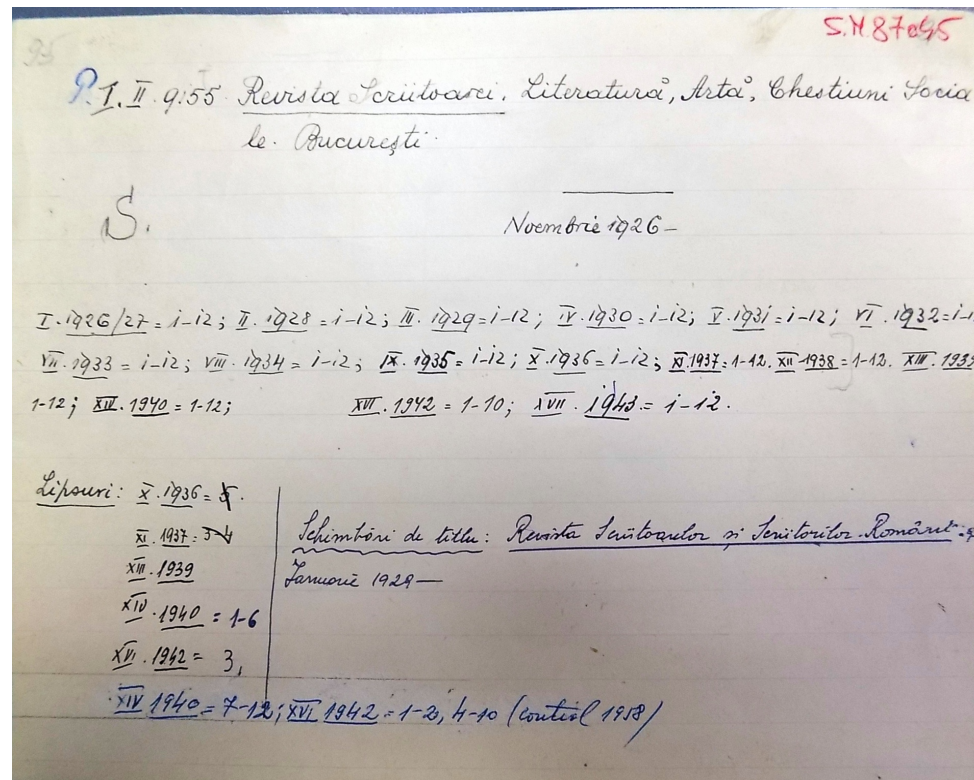 S.M.87045
95
P.I.II.9:55 Revista Scriitoarei. Literatură, Artă, Chestiuni Socia
le. București.
S.
Noembrie 1926–
I.1926/27 = 1-12; II.1928 = 1-12; III.1929=1-12; IV.1930=1-12; V.1931=1-12; VI.1932=1-1
VII.1933 = 1-12; VIII.1934 = 1-12; IX.1935 = 1-12; X.1936=1-12; XI.1937=1-12. XII-1938=1-12. XIII.193
1-12; XIV.1940 = 1-12; XVI.1942 = 1-10; XVII.1943 = 1-12.
Lipsuri: X.1936=
XI.1937=3-4
XIII.1939
XIV.1940 = 1-6
XVI.1942 = 3,
Schimbări de titlu: Revista Scriitoarelor și Scriitorilor Români:
Ianuarie 1929—
XIV 1940=7-12; XVI 1942=1-2, 4-10 (control 1958)